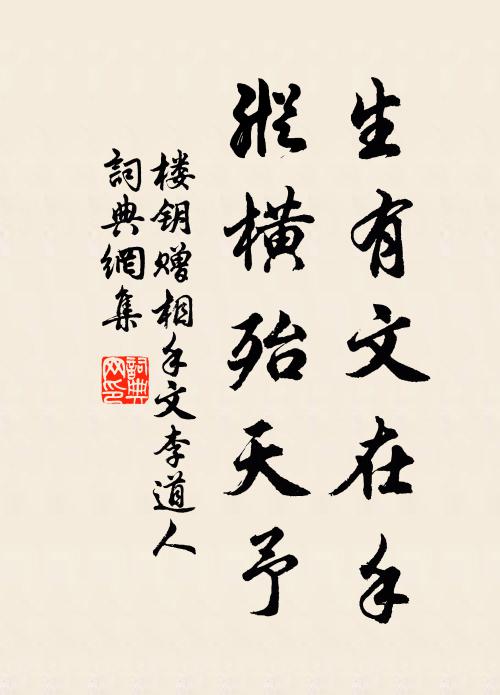 生有文在手
縱橫殆天予
楼钥赠相手文李道人
詞典網集
詞典网印